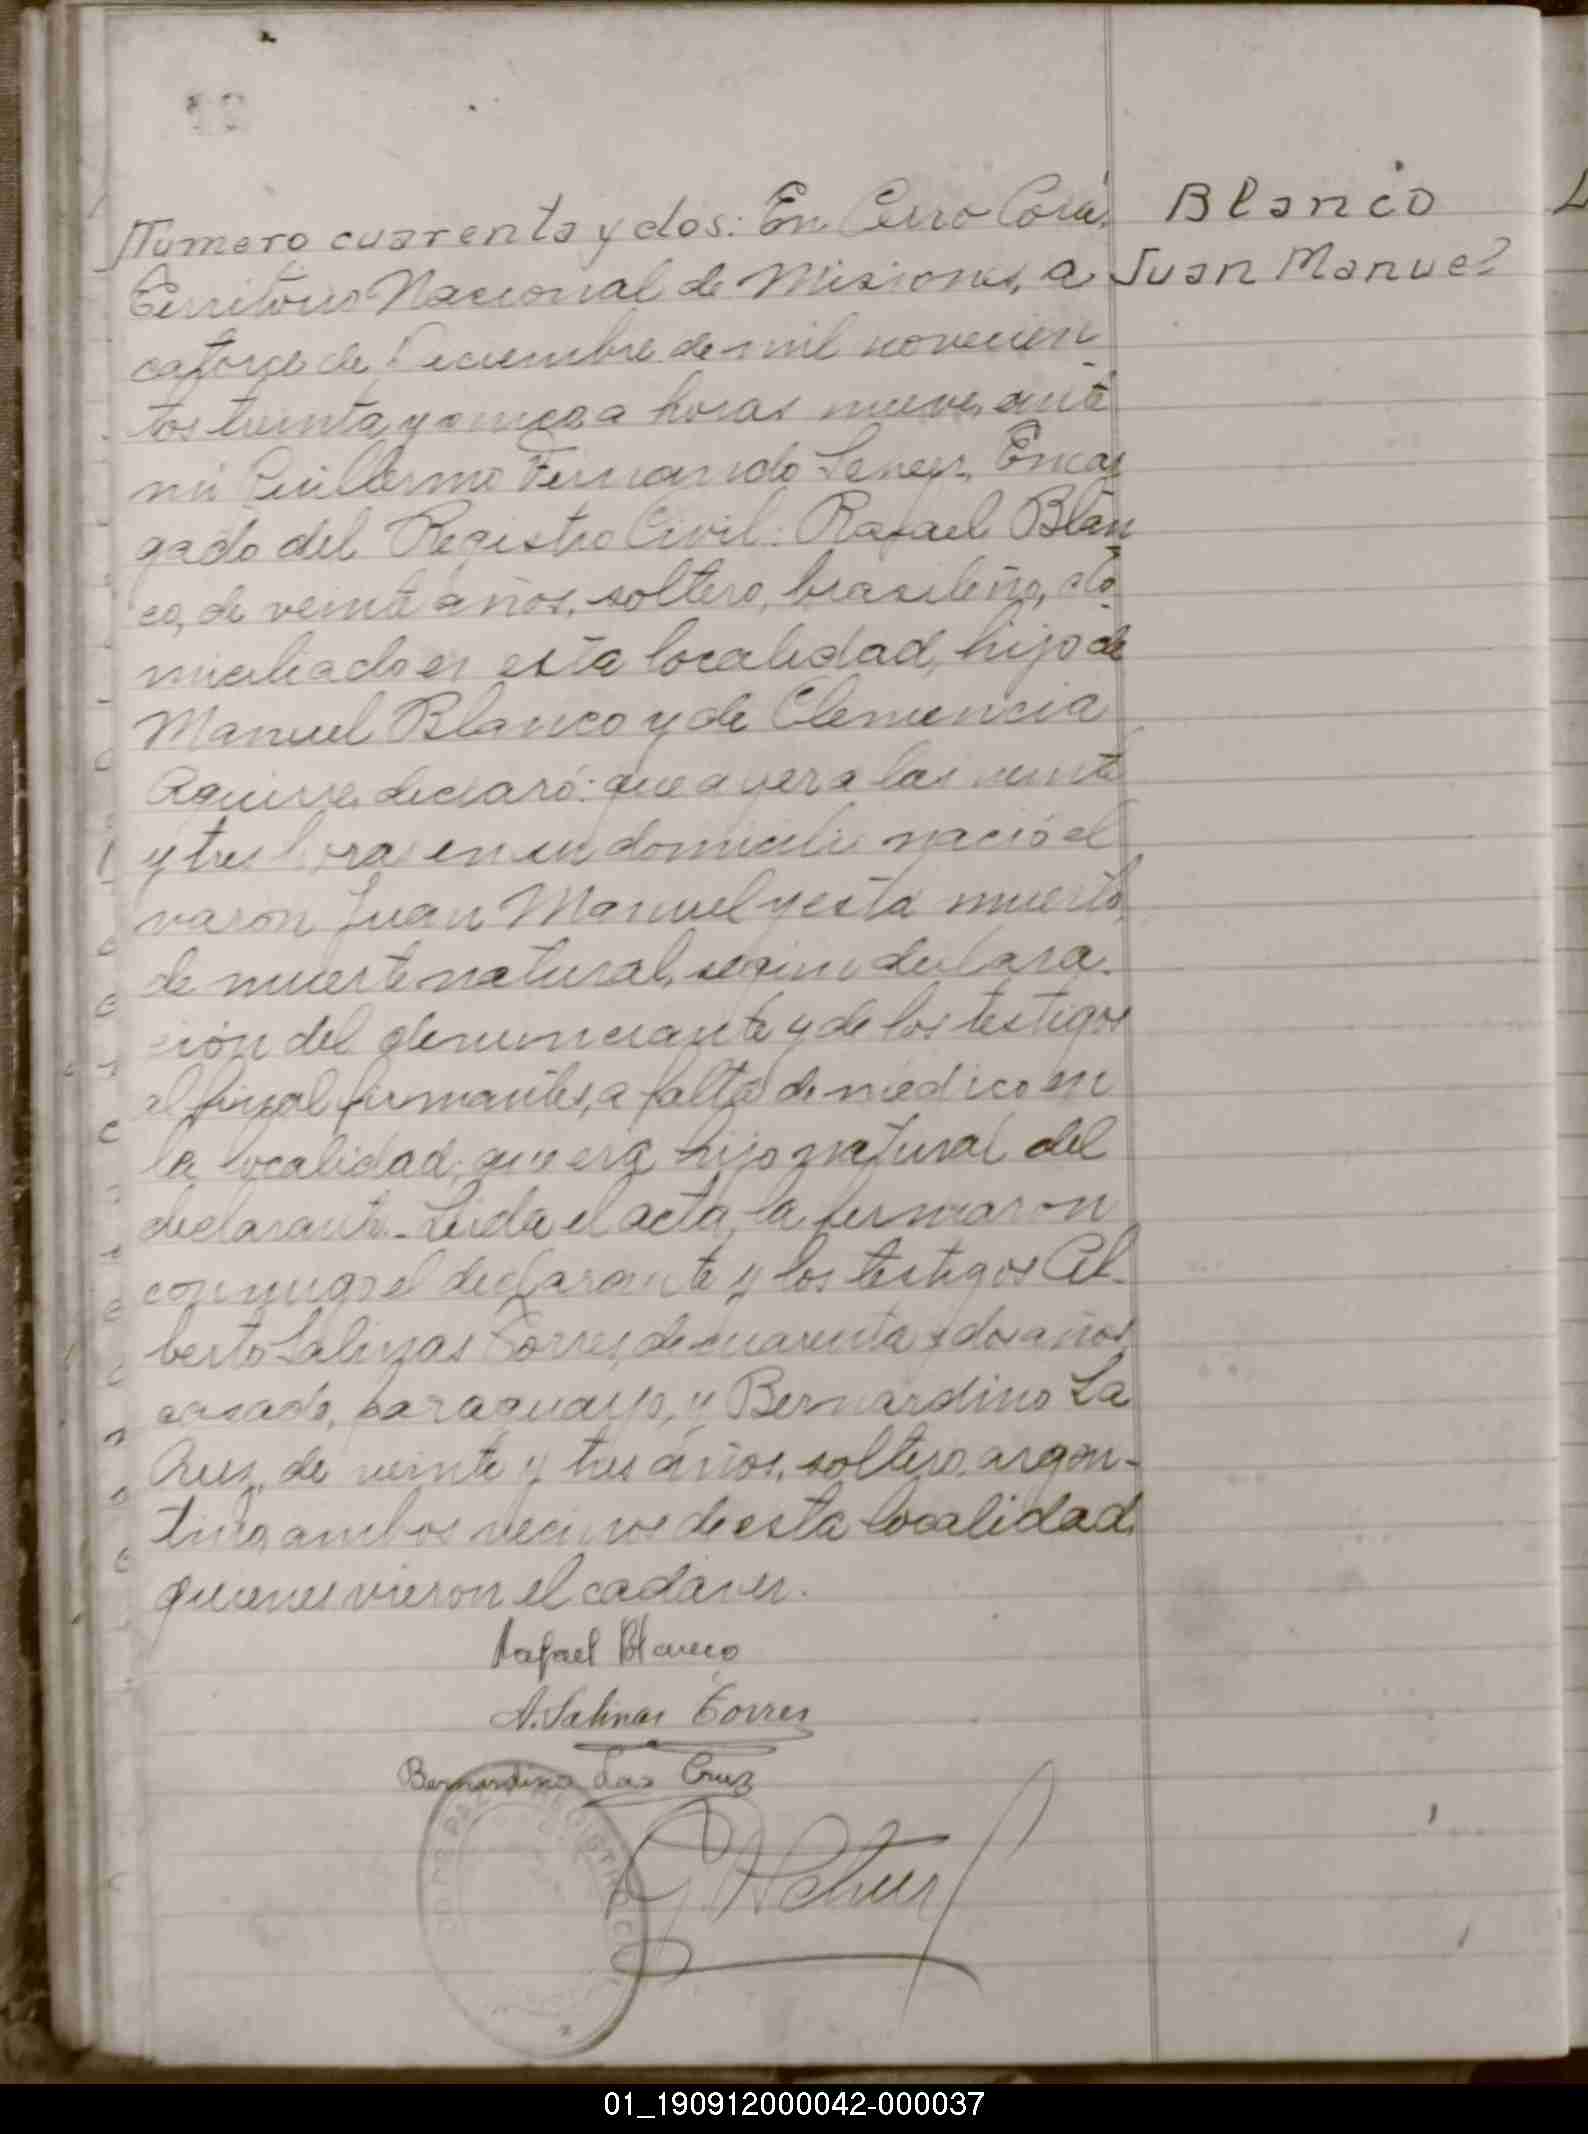 Numero cuarenta y dos: En Cerro Corá, Blanco
Territorio Nacional de Misiones, a Juan Manuel
catorce de Diciembre de mil novecien
tos treinta y a horas nueve, ante
mi Guillermo Fernando Encar
gado del Registro Civil: Rafael Blan
co, de veinte años, soltero, brasileño, do
miciliado en esta localidad, hijo de
Manuel Blanco y de Clemencia
Aguirre, declaró: que ayer a las veinte
y tres horas en su domicilio nació el
varon Juan Manuel y esta muerto,
de muerte natural, segun declara
ción del denunciante y de los testigos
al final firmantes, a falta de médico en
la localidad; que era hijo natural del
declarante. Leida el acta, la firmaron
conmigo el declarante y los testigos Al-
berto Salinas Torres, de cuarenta y dos años,
casado, paraguayo, y Bernardino La
Cruz, de veinte y tres años, soltero, argen-
tino, ambos vecinos de esta localidad,
quienes vieron el cadáver.
Rafael Blanco
A. Salinas Torres
Bernardino Las Cruz
01_190912000042-000037